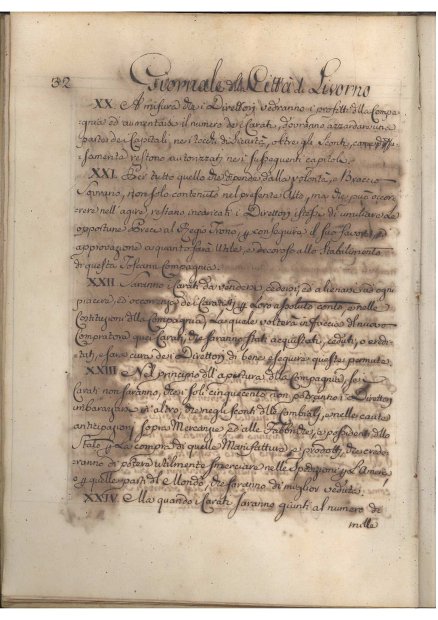 32 Giornale della Città di Livorno
XX. A misura che i Direttori vedranno i profitti della Compa-
gnia ed aumentarsi il numero dei Carati, dovranno azzardare una
parte dei Capitali, nei rischi di Sicurtà, oltre gli Sconti,
restono autorizzati nei susseguenti capitoli.
XXI. Per tutto quello che dipende dalla volontà, e Braccio
Sovrano, non solo contenuto nel presente Atto, ma che può occor-
rere nell' agire restano incaricati i Direttori istessi di umiliare le
opportune Preci al Regio Trono, p conseguire il suo Favore, e
approvazione a quanto sarà Utile, e decoroso allo Stabilimento
di questa Toscana Compagnia.
XXII Saranno i Carati da vendersi, cedersi, ed alienarsi ad ogni
piacere, ed occorrenza dei Caratisti p Loro assoluto conto, e nelle
Costituzioni della Compagnia, La quale volterà in faccia di nuovo
Compratore quei Carati, che saranno stati acquistati, ceduti, o eredi-
tati, e sarà cura dei Direttori di bene eseguire queste permute.
XXIII Nel principio dell' apertura della Compagnia, se i
Carati non saranno, che soli cinquecento non potranno i Direttori
imbarazzarsi in altro, che negli Sconti delle Cambiali, e nelle caute
anticipazioni sopra Mercanzie, ed alle Fabbriche, e possidenti dello
Stato, p La compra di quelle Manifatture, e prodotti, che crede-
ranno di potere utilmente smerciare nelle Spedizioni p L'Amere
o p quelle parti del Mondo, che saranno di miglior vedute.
XXIV. Ma quando i Carati saranno giunti al numero di
mille